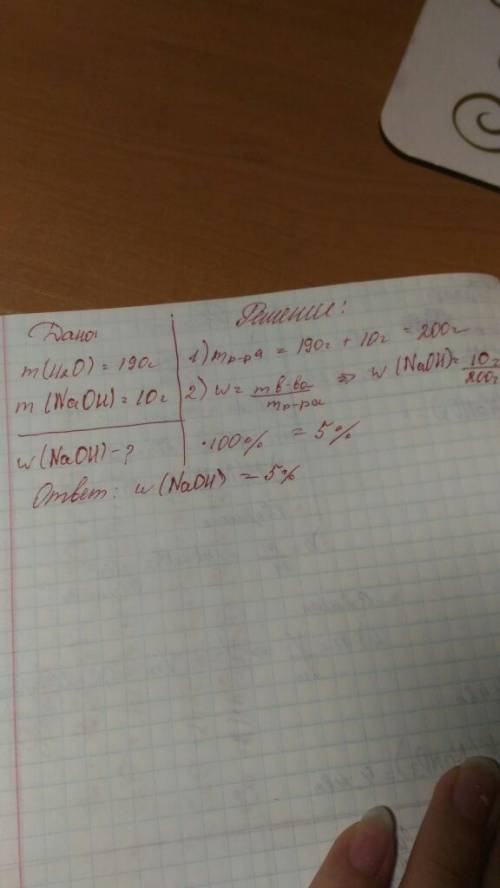 Дано
m(H2O) = 190г
m (NaOH) = 10г
w(NaOH) - ?
Решение:
1) mр-ра = 190г + 10г = 200г
2) w = mв-ва/mр-ра => w (NaOH) = 10г/200г
·100% = 5%
Ответ: w (NaOH) = 5%